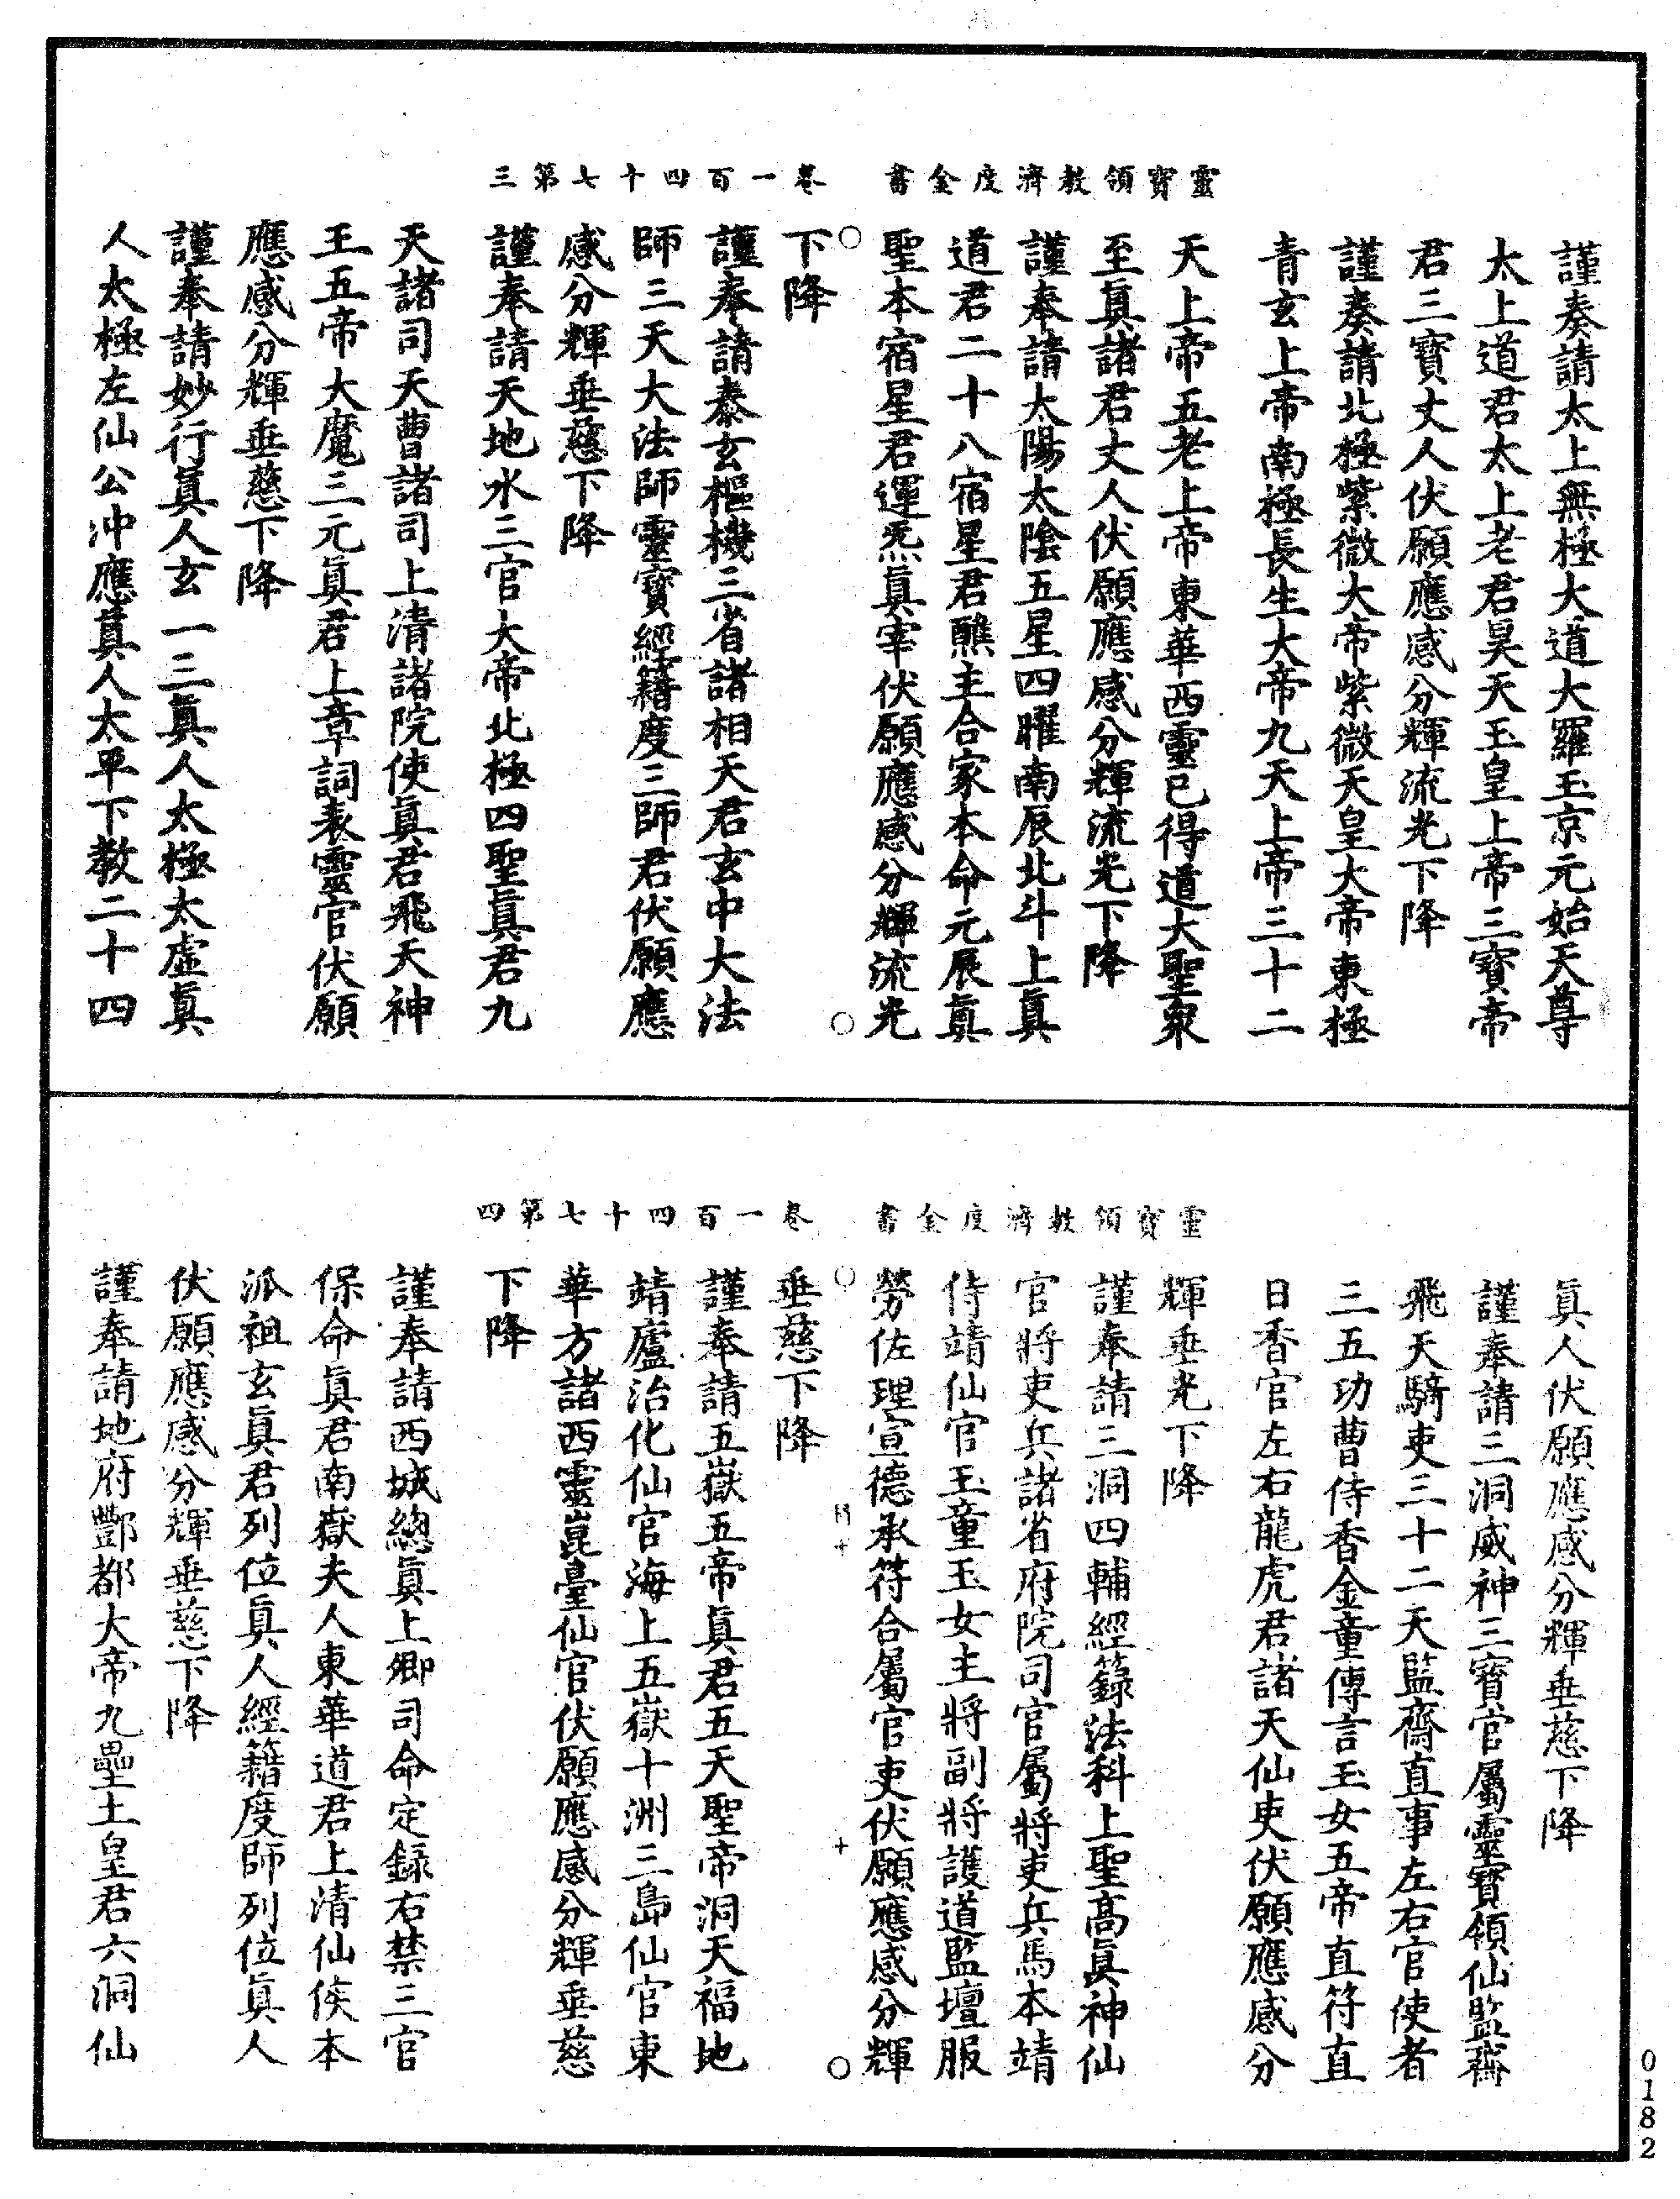 靈寶領教濟度金書　卷一百四十七第三
謹奏請太上無極大道大羅玉京元始天尊
太上道君太上老君昊天玉皇上帝三寶帝
君三寶丈人伏願應感分輝流光下降
謹奏請北極紫微大帝紫微天皇大帝東極
青玄上帝南極長生大帝九天上帝三十二
天上帝五老上帝東華西靈已得道大聖衆
至眞諸君丈人伏願應感分輝流光下降
謹奉請太陽太陰五星四曜南辰北斗上眞
道君二十八宿星君醮主合家本命元辰眞
聖本宿星君運炁眞宰伏願應感分輝流光
下降
謹奉請泰玄樞機三省諸相天君玄中大法
師三天大法師靈寶經籍度三師君伏願應
感分輝垂慈下降
謹奉請天地水三官大帝北極四聖眞君九
天諸司天曹諸司上清諸院使眞君飛天神
王五帝大魔三元眞君上章詞表靈官伏願
應感分輝垂慈下降
謹奉請妙行眞人玄一三眞人太極太虛眞
人太極左仙公沖應眞人太平下教二十四
靈寶領教濟度金書　卷一百四十七第四
眞人伏願應感分輝垂慈下降
謹奉請三洞威神三寶官屬靈寶領仙監齋
飛天騎吏三十二天監齋直事左右官使者
三五功曹侍香金童傳言玉女五帝直符直
日香官左右龍虎君諸天仙吏伏願應感分
輝垂光下降
謹奉請三洞四輔經籙法科上聖高眞神仙
官將吏兵諸省府院司官屬將吏兵馬本靖
侍靖仙官玉童玉女主將副將護道監壇服
勞佐理宣德承符合屬官吏伏願應感分輝
垂慈下降
謹奉請五嶽五帝眞君五天聖帝洞天福地
靖廬治化仙官海上五嶽十洲三島仙官東
華方諸西靈崑臺仙官伏願應感分輝垂慈
下降
謹奉請西城總眞上卿司命定錄右禁三官
保命眞君南嶽夫人東華道君上清仙侯本
派祖玄眞君列位眞人經籍度師列位眞人
伏願應感分輝垂慈下降
謹奉請地府酆都大帝九壘土皇君六洞仙
0182